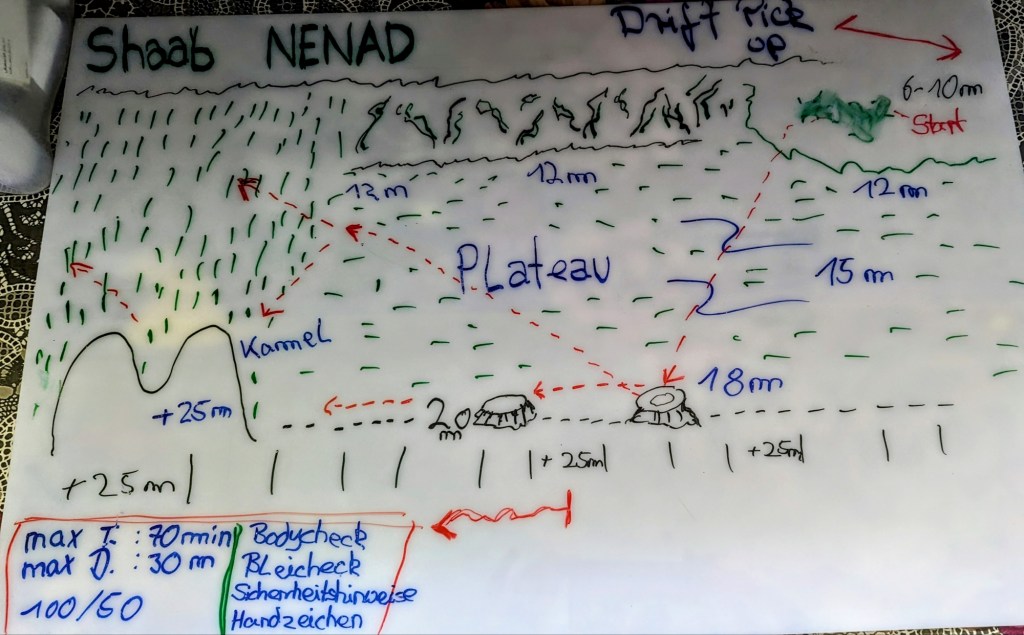 Shaab NENAD
Drift Pick
up
6-10m
Start
13 m
12m
12m
Plateau
15 m
Kamel
18m
+25m
20
m
+25m
+25m
+25m
max T. : 70min
max D. : 30 m
100/50
Bodycheck
BLeicheck
Sicherheitshinweise
Handzeichen